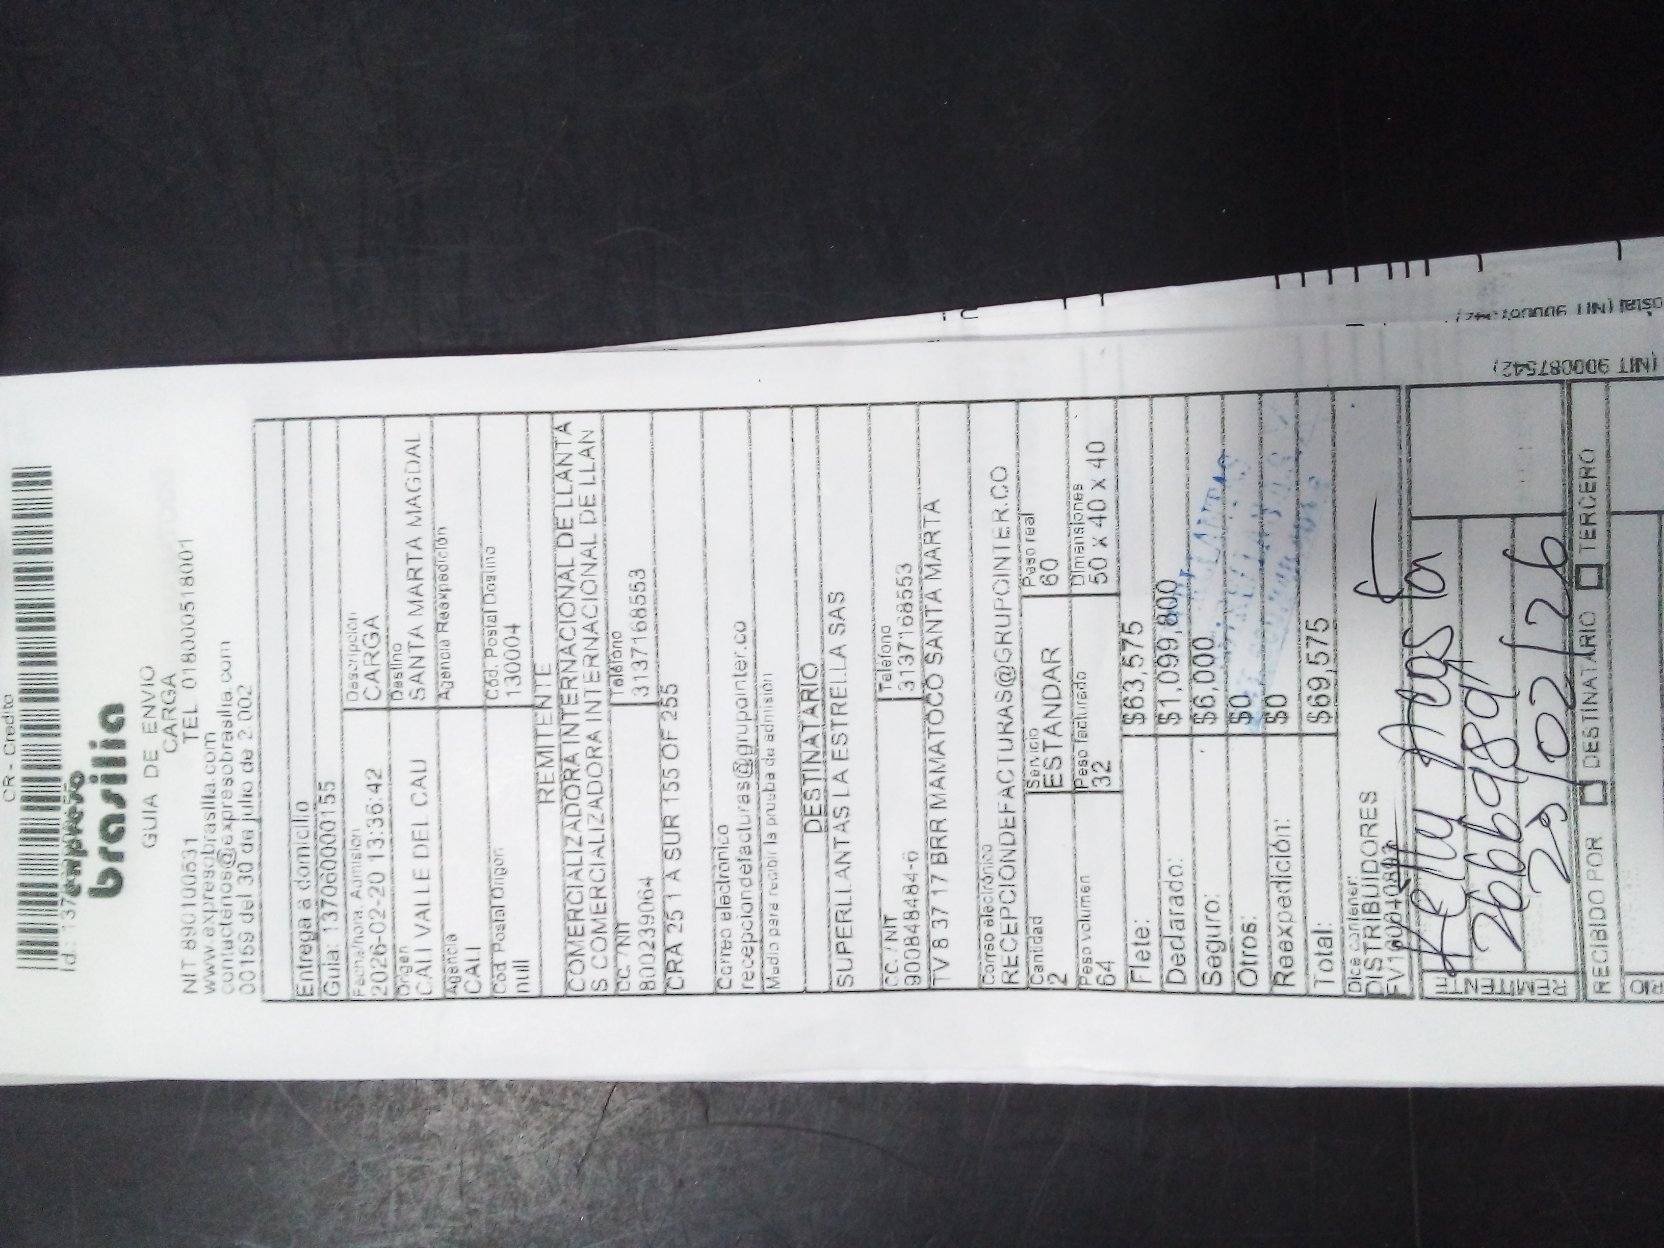 CR - Credito
expreso
brasilia
GUIA DE ENVIO
CARGA
NIT 890100531 TEL 018000518001
www.expresobrasilia.com
contactenos@expresobrasilia.com
00159 del 30 de julio de 2.002
Entrega a domicilio
Guia: 1370600000155
Fecha/hora. Admision Descripción
2026-02-20 13:36:42 CARGA
Origen Destino
CALI VALLE DEL CAU SANTA MARTA MAGDAL
Agencia Agencia Reexpedición
CALI
Cod Postal Origen Cód. Postal Destino
null 130004
REMITENTE
COMERCIALIZADORA INTERNACIONAL DE LLANTA
S COMERCIALIZADORA INTERNACIONAL DE LLAN
CC. /NIT Teléfono
800239064 3137168553
CRA 25 1 A SUR 155 OF 255
Correo electrónico
recepciondefacturas@grupointer.co
Medio para recibir la prueba de admisión
DESTINATARIO
SUPERLLANTAS LA ESTRELLA SAS
CC. / NIT Teléfono
900848484-6 3137168553
TV 8 37 17 BRR MAMATOCO SANTA MARTA
Correo electrónico
RECEPCIONDEFACTURAS@GRUPOINTER.CO
Cantidad Servicio Peso real
2 ESTANDAR 60
Peso volumen Peso facturado Dimensiones
64 32 50 x 40 x 40
Flete: $63,575
Declarado: $1,099,800
Seguro: $6,000
Otros: $0
Reexpedición: $0
Total: $69,575
Dice contener:
DISTRIBUIDORES
REMITENTE
Kelly Acosta
2666989
23/02/26
RECIBIDO POR DESTINATARIO TERCERO
(NIT 900087542)